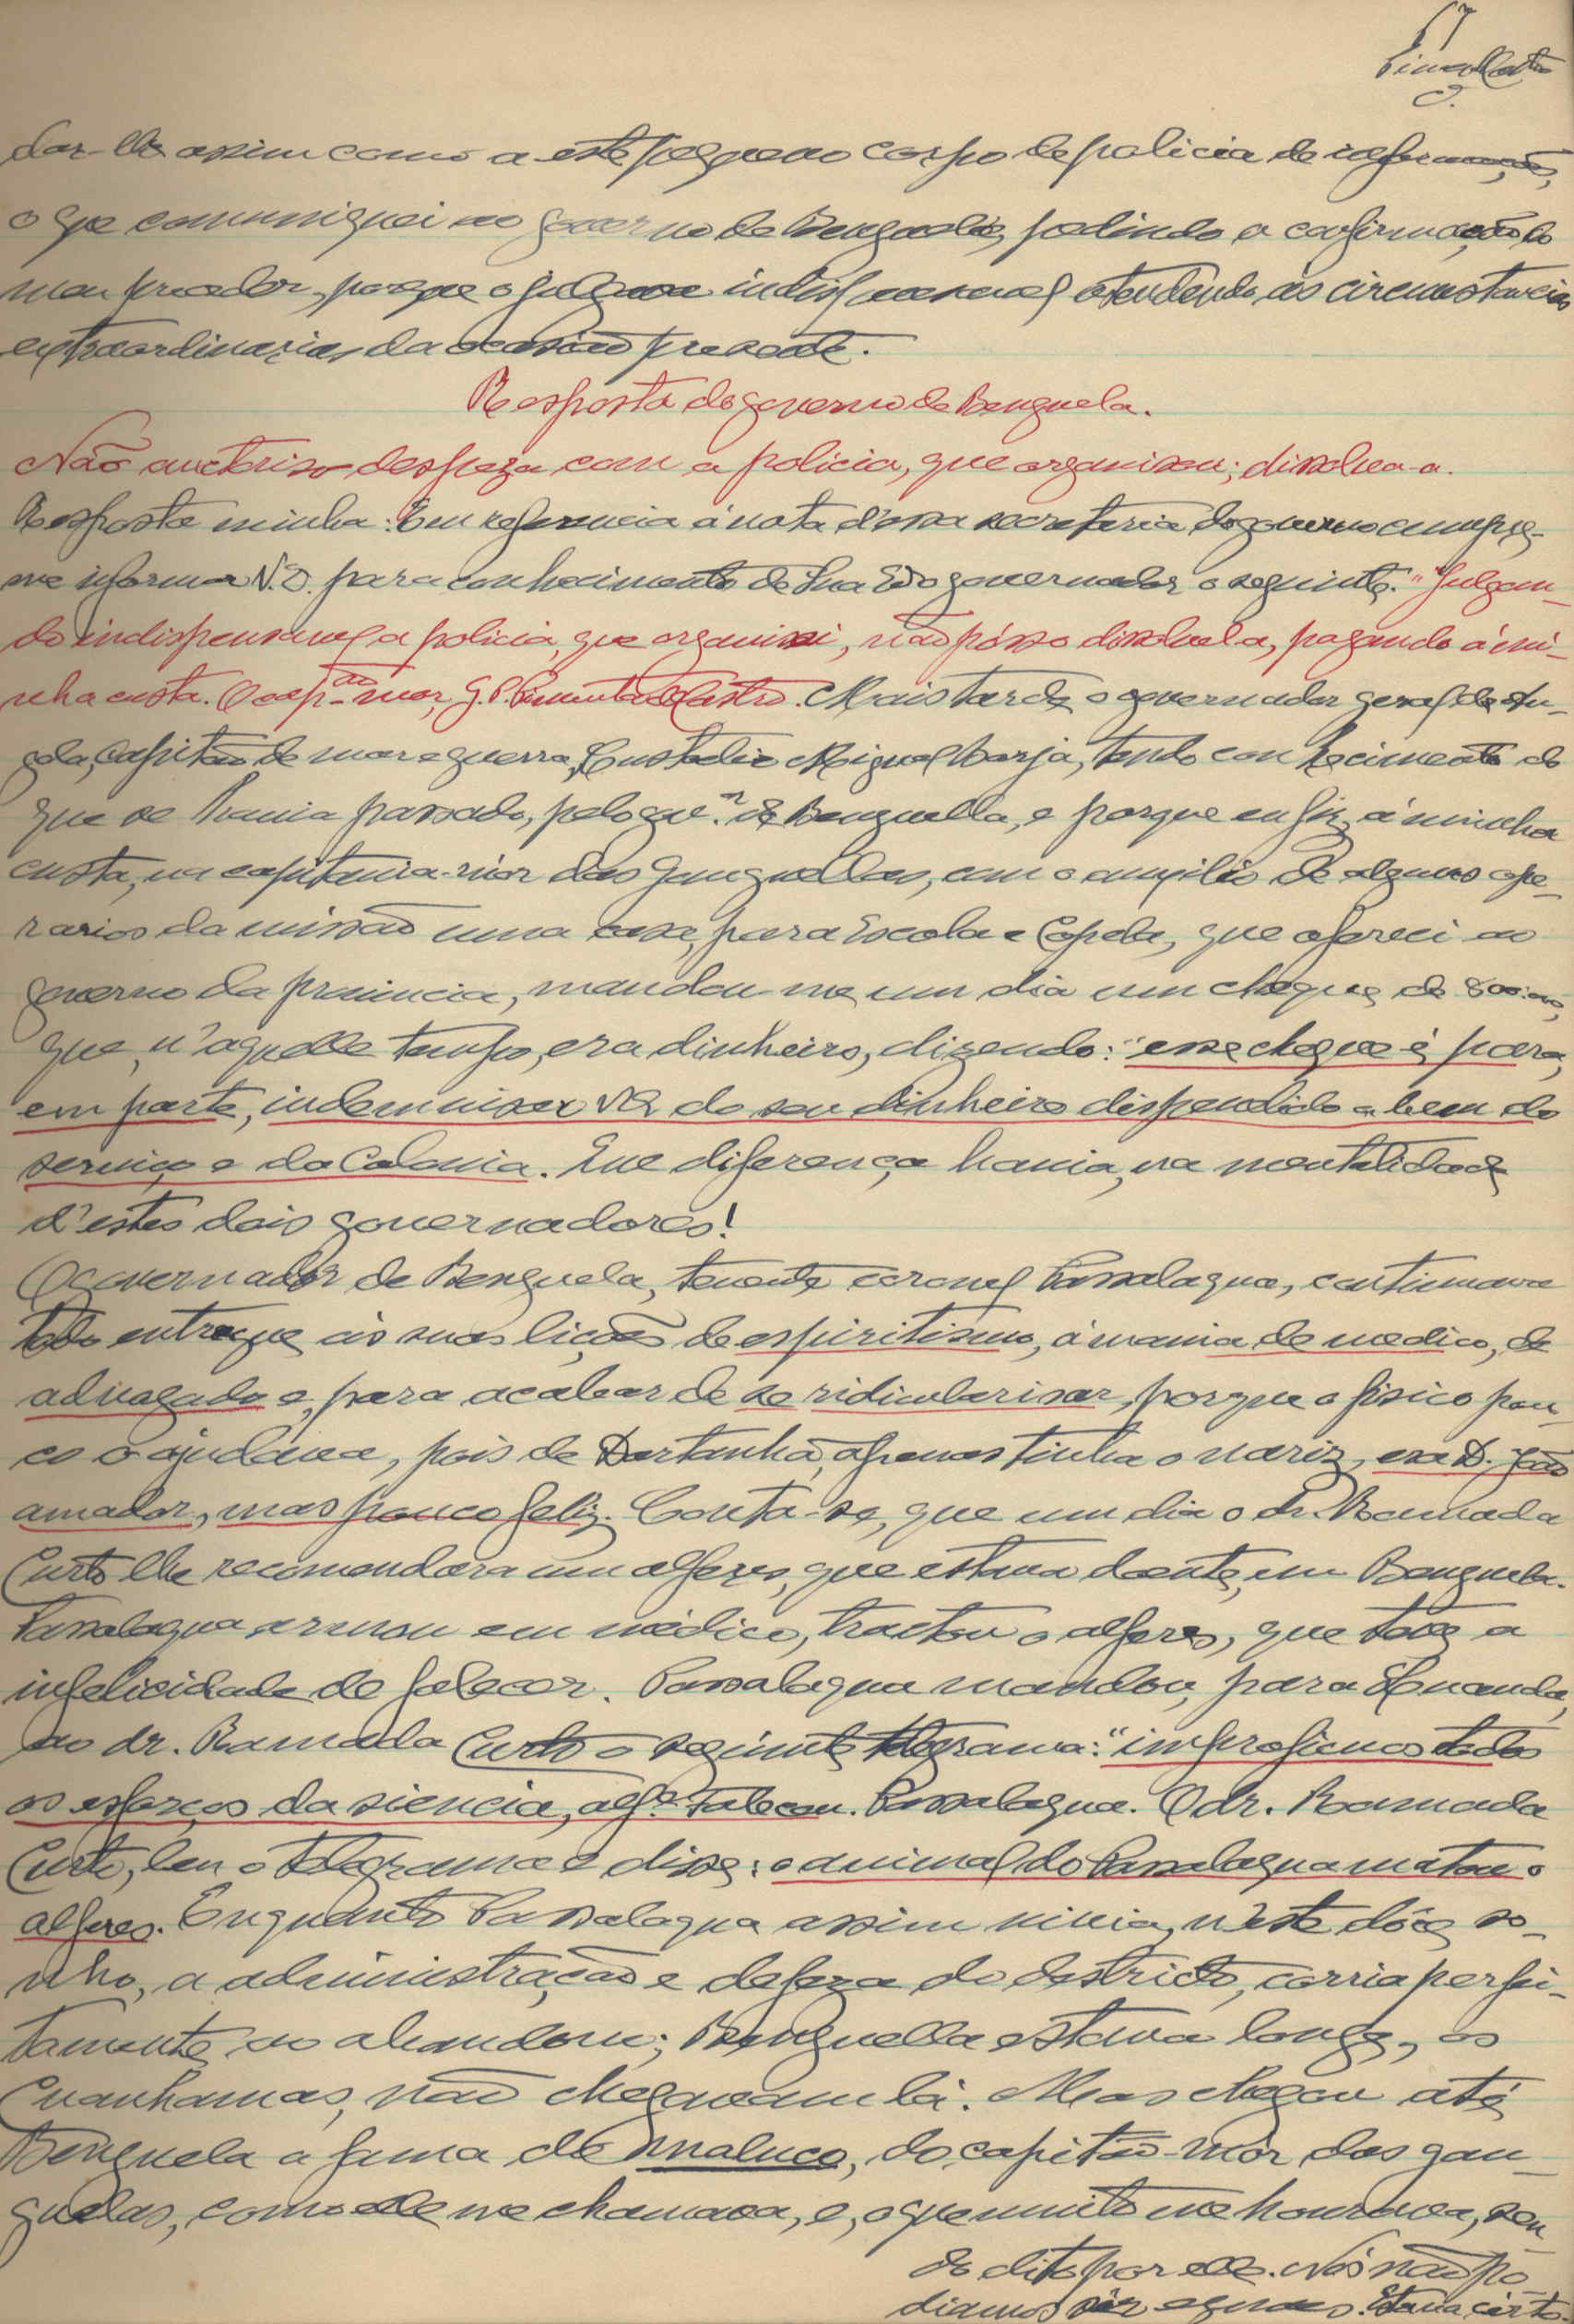 67
Pimta Castro
dar-lhe assim como a este pequeno corpo de policia de informações,
o que comuniquei ao governo de Benguela, pedindo a confirmação do
meu proceder, porque o julgava indispensavel atendendo, ás circumstancias
extraordinarias da ocasião presente.
Resposta do governo de Benguela.
Não auctoriso despeza com a policia, que organisou; dissolva-a.
Resposta minha: Em referencia á nota d'essa secretaria do governo cumpre-
me informar V. S. para conhecimento de Sua Exª o governador o seguinte: "Julgan-
do indispensavel a policia, que organisei, não pósso dissolvela, pagando á mi-
nha custa. O cap.tão-mor, J. P. Pimenta de Castro. Mais tarde o governador geral de An-
gola, capitão de mar e guerra, Custodio Miguel Borja, tendo conhecimento do
que se havia passado, pelo gov.or de Benguella, e porque eu fiz, á minha
custa, na capitania-mór dos Ganguellas, com o auxilio de alguns ope-
rarios da missão uma casa, para Escola e Capela, que ofereci ao
governo da provincia, mandou-me um dia um cheque de 800:000,
que, n'aquelle tempo, era dinheiro, dizendo: "esse cheque é para,
em parte, indemnisar V. S. do seu dinheiro dispendido a bem do
serviço e da Colonia. Que diferença havia, na mentalidade
d'estes dois governadores!
O governador de Benguela, tenente coronel Passalaqua, continuava
todo entregue ás suas lições de espiritismo, á mania de medico, de
advogado e, para acabar de se ridicularisar, porque o fisico pou-
co o ajudava, pois de Dartanhã, apenas tinha o nariz, era D. João
amador, mas pouco feliz. Conta-se, que um dia o dr. Ramada
Curto lhe recomendara um alferes, que estava doente, em Benguela.
Passalaqua armou em médico, tractou o alferes, que teve a
infelicidade de falecer. Passalaqua mandou, para Luanda,
ao dr. Ramada Curto o seguinte telegrama: "improficuos todos
os esforços da siencia, alfes faleceu. Passalaqua. O dr. Ramada
Curto, leu o telegrama e disse: o animal do Passalaqua matou o
alferes. Enquanto Passalaqua assim vivia, n'este dôce so-
nho, a administração e defeza do destricto, corria perfei-
tamente ao abandono; Benguella estava longe, os
Cuanhamas, não chegavam lá. Mas chegou até
Benguela a fama de maluco, do capitão-mór dos gan-
guelas, como elle me chamava, e, o que muito me honrava, sen-
do dito por elle. Nós não po-
diamos sêr eguaes. Estava certo.